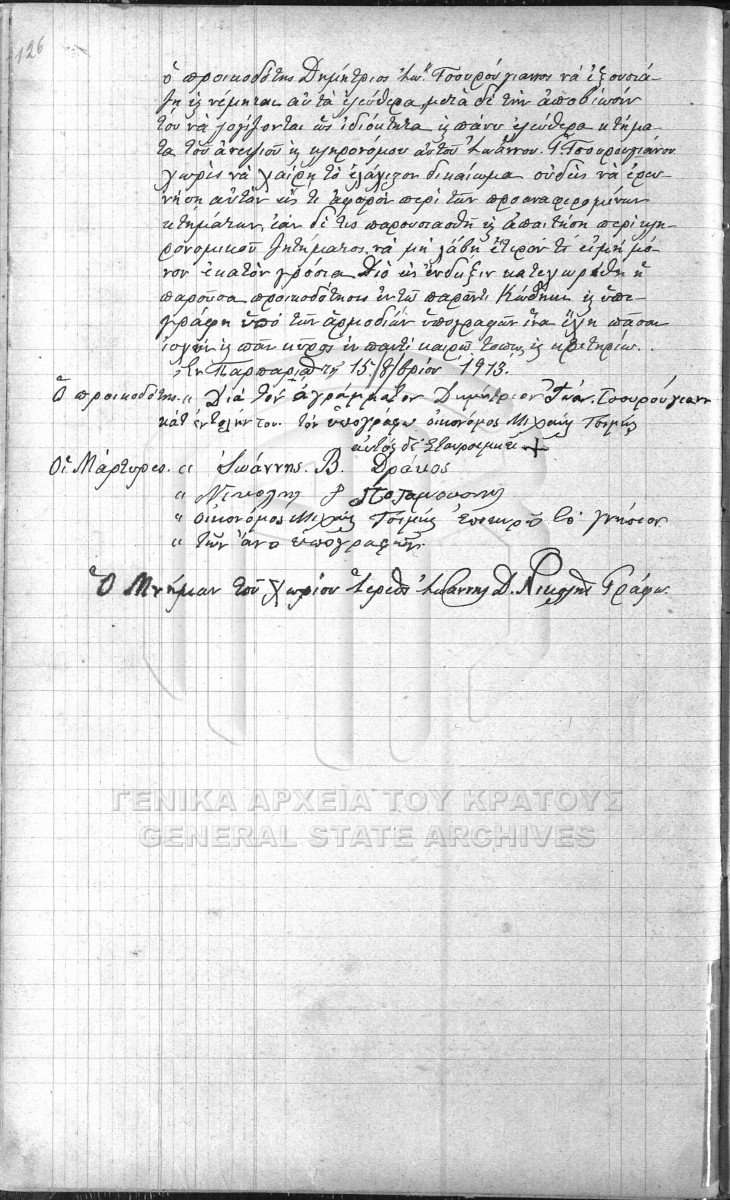 126
ὁ προικοδότης Δημήτριος Ἰω. Τσουρούγιαννος νὰ ἐξουσιά-
ζῃ ϗ νέμηται αὐτὰ ἐλεύθερα, μετὰ δὲ τὴν ἀποβίωσίν
του νὰ λογίζονται ὡς ἰδιόκτητα ϗ πάνυ ἐλεύθερα κτήμα-
τα τοῦ ἀνεψιοῦ ϗ κληρονόμου αὐτοῦ Ἰωάννου. Γ. Τσουρούγιαννου
χωρὶς νὰ χαίρῃ τὸ ἐλάχιστον δικαίωμα οὐδεὶς νὰ ἐρευ-
νήσῃ αὐτὸν εἰς τι ἀφορὸν περὶ τῶν προαναφερομένων
κτημάτων, ἐὰν δέ τις παρουσιασθῇ ϗ ἀπαιτήσῃ περὶ κλη-
ρονομικοῦ ζητήματος νὰ μὴ λάβῃ ἕτερόν τι εἰμὴ μό-
νον ἑκατὸν γρόσια. Διὸ εἰς ἔνδειξιν κατεχωρίσθη ἡ
παροῦσα προικοδότησις ἐν τῷ παρόντι Κώδηκι ϗ ὑπε-
γράφη ὑπὸ τῶν ἁρμοδίων ὑπογραφῶν ἵνα ἔχῃ πᾶσαν
ἰσχὺν ϗ πᾶν κῦρος ἐν παντὶ καιρῷ τόπῳ ϗ κριτηρίῳ.
Ἐν Παρπαριᾷ τῇ 15/8/βρίου 1913.
Ὁ προικοδότης. „ Διὰ τὸν ἀγράμματον Δημήτριον Ἰωάν. Τσουρούγιανν
κατ ἐντολήν του τὸν ὑπογράφω οἰκονόμος Μιχαὴλ Τσιμής
αὐτὸς δὲ σταυρώνει +
Οἱ Μάρτυρες. „ Ἰωάννης. Β. Δράκος
„ Νικολης
„ οἰκονόμος Μιχαὴλ Τσιμής ἐπικυρῶ τὸ γνήσιον
„ τῶν ἄνο ὑπογραφῶν.
Ὁ Μνήμων τοῦ χωρίου Ἱερεὺς Ἰωάννης Δ. Νικολῆς Γράφω.
ΓΕΝΙΚΑ ΑΡΧΕΙΑ ΤΟΥ ΚΡΑΤΟΥΣ
GENERAL STATE ARCHIVES